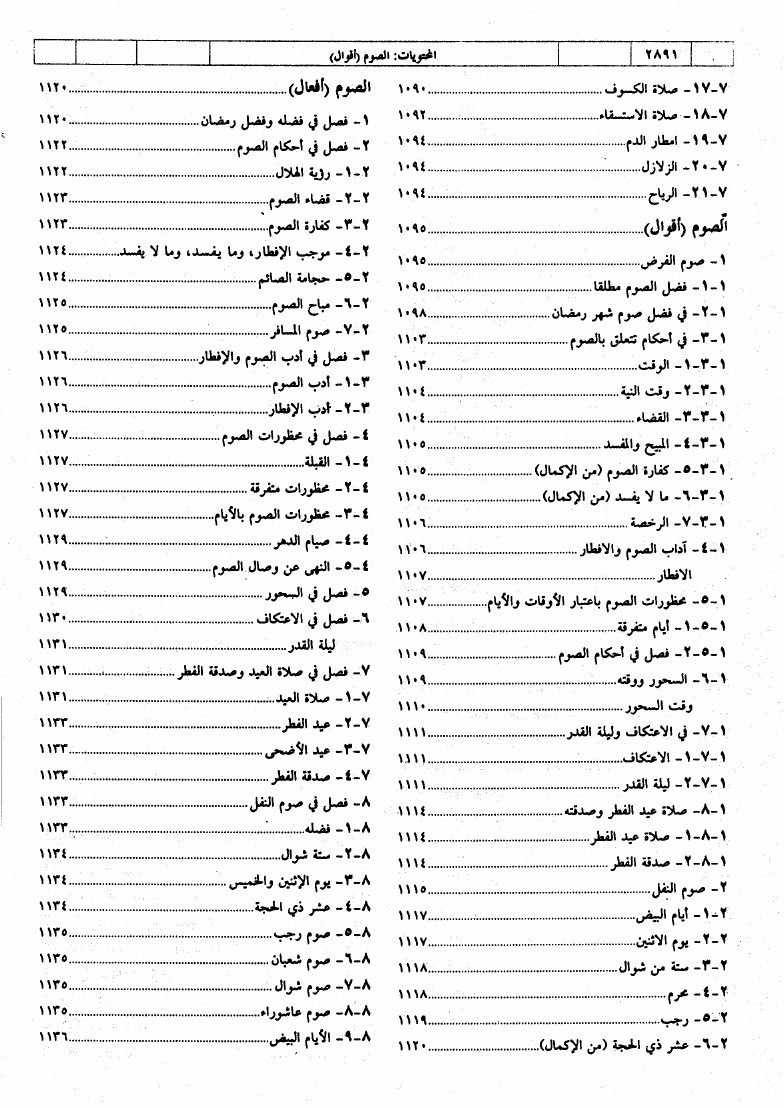 ٢٨٩١
المحتويات: الصوم (أقوال)
٧-١٧- صلاة الكسوف................١٠٩٠
٧-١٨- صلاة الاستسقاء................١٠٩٢
٧-١٩- امطار الدم................١٠٩٤
٧-٢٠- الزلازل................١٠٩٤
٧-٢١- الرياح................١٠٩٤
الصوم (أقوال)................١٠٩٥
١- صوم الفرض................١٠٩٥
١-١- فضل الصوم مطلقا................١٠٩٥
١-٢- في فضل صوم شهر رمضان................١٠٩٨
١-٣- في أحكام تتعلق بالصوم................١١٠٣
١-٣-١- الوقت................١١٠٣
١-٣-٢- وقت النية................١١٠٤
١-٣-٣- القضاء................١١٠٤
١-٣-٤- المبيح والمفسد................١١٠٥
١-٣-٥- كفارة الصوم (من الإكمال)................١١٠٥
١-٣-٦- ما لا يفسد (من الإكمال)................١١٠٥
١-٣-٧- الرخصة................١١٠٦
١-٤- آداب الصوم والافطار................١١٠٦
الافطار................١١٠٧
١-٥- محظورات الصوم باعتبار الأوقات والأيام................١١٠٧
١-٥-١- أيام متفرقة................١١٠٨
١-٥-٢- فصل في أحكام الصوم................١١٠٩
١-٦- السحور ووقته................١١٠٩
وقت السحور................١١١٠
١-٧- في الاعتكاف وليلة القدر................١١١١
١-٧-١- الاعتكاف................١١١١
١-٧-٢- ليلة القدر................١١١١
١-٨- صلاة عيد الفطر وصدقته................١١١٤
١-٨-١- صلاة عيد الفطر................١١١٤
١-٨-٢- صدقة الفطر................١١١٤
٢- صوم النفل................١١١٥
٢-١- أيام البيض................١١١٧
٢-٢- يوم الاثنين................١١١٧
٢-٣- ستة من شوال................١١١٨
٢-٤- محرم................١١١٨
٢-٥- رجب................١١١٩
٢-٦- عشر ذي الحجة (من الإكمال)................١١٢٠
الصوم (أفعال)................١١٢٠
١- فصل في فضله وفضل رمضان................١١٢٠
٢- فصل في أحكام الصوم................١١٢٢
٢-١- رؤية الهلال................١١٢٢
٢-٢- قضاء الصوم................١١٢٣
٢-٣- كفارة الصوم................١١٢٣
٢-٤- موجب الإفطار، وما يفسد، وما لا يفسد................١١٢٤
٢-٥- حجامة الصائم................١١٢٤
٢-٦- مباح الصوم................١١٢٥
٢-٧- صوم المسافر................١١٢٥
٣- فصل في أدب الصوم والإفطار................١١٢٦
٣-١- أدب الصوم................١١٢٦
٣-٢- أدب الإفطار................١١٢٦
٤- فصل في محظورات الصوم................١١٢٧
٤-١- القبلة................١١٢٧
٤-٢- محظورات متفرقة................١١٢٧
٤-٣- محظورات الصوم بالأيام................١١٢٧
٤-٤- صيام الدهر................١١٢٩
٤-٥- النهى عن وصال الصوم................١١٢٩
٥- فصل في السحور................١١٢٩
٦- فصل في الاعتكاف................١١٣٠
ليلة القدر................١١٣١
٧- فصل في صلاة العيد وصدقة الفطر................١١٣١
٧-١- صلاة العيد................١١٣١
٧-٢- عيد الفطر................١١٣٣
٧-٣- عيد الأضحى................١١٣٣
٧-٤- صدقة الفطر................١١٣٣
٨- فصل في صوم النفل................١١٣٣
٨-١- فضله................١١٣٣
٨-٢- ستة شوال................١١٣٤
٨-٣- يوم الإثنين والخميس................١١٣٤
٨-٤- عشر ذي الحجة................١١٣٤
٨-٥- صوم رجب................١١٣٥
٨-٦- صوم شعبان................١١٣٥
٨-٧- صوم شوال................١١٣٥
٨-٨- صوم عاشوراء................١١٣٥
٨-٩- الأيام البيض................١١٣٦